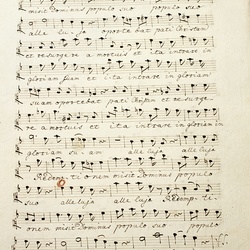 misit Dominus populo suo populo suo
alle luja oportebat pati Christum
et resurgere a mortuis et ita intrare in
gloriam suam et ita intrare in gloriam
suam oportebat pati Christum et resurge
re a mortuis et ita intrare in gloriam in
gloria suam alle luja
Redemp ti onem misit Dominus populo
suo alleluja alle luja Redemp ti
onem misit Dominus populo suo populo